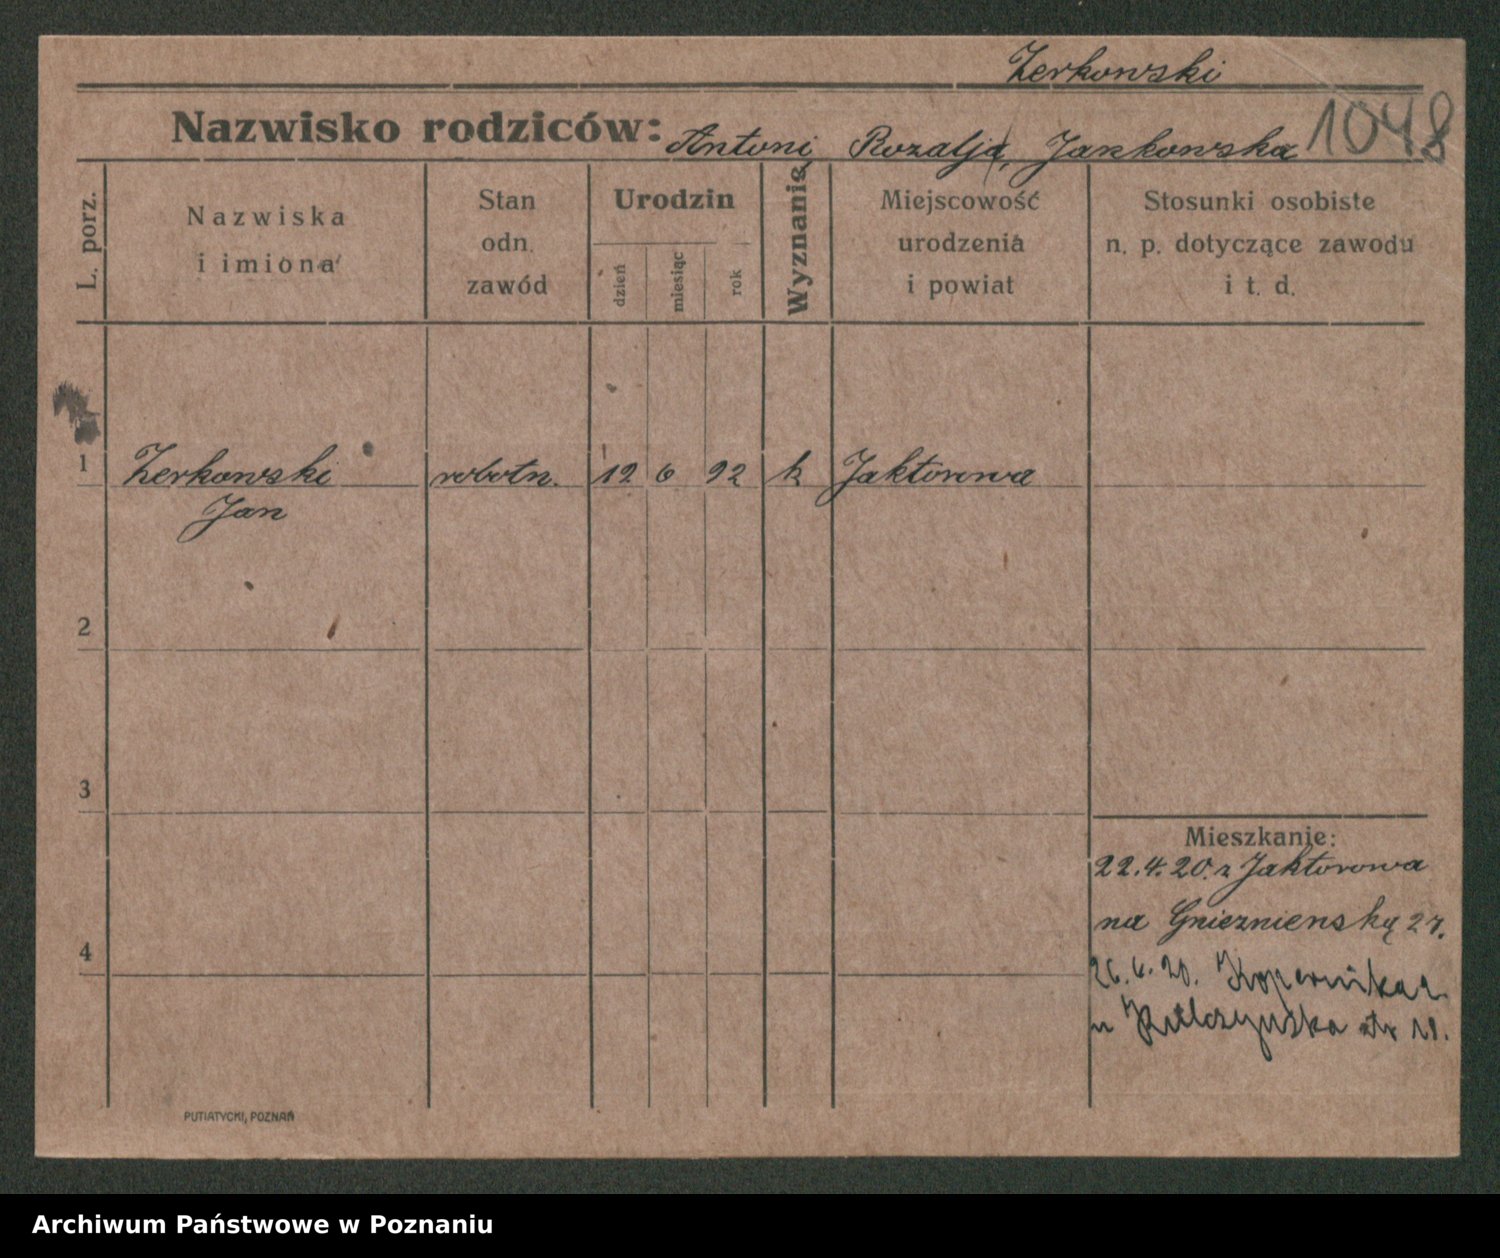 Zerkowski
Nazwisko rodziców: Antoni, Rozalja, Jankowska 1048
L. porz.
Nazwiska
i imiona
Stan
odn.
zawód
Urodzin
dzień
miesiąc
rok
Wyznanie
Miejscowość
urodzenia
i powiat
Stosunki osobiste
n. p. dotyczące zawodu
i t. d.
1 Zerkowski robotn. 12 6 92 k Jaktorowa
Jan
2
3
Mieszkanie:
22.4.20. z Jaktorowa
na Gnieznienską 27.
4
26. 20. Kopernika
u 18.
PUTIATYCKI, POZNAŃ
Archiwum Państwowe w Poznaniu